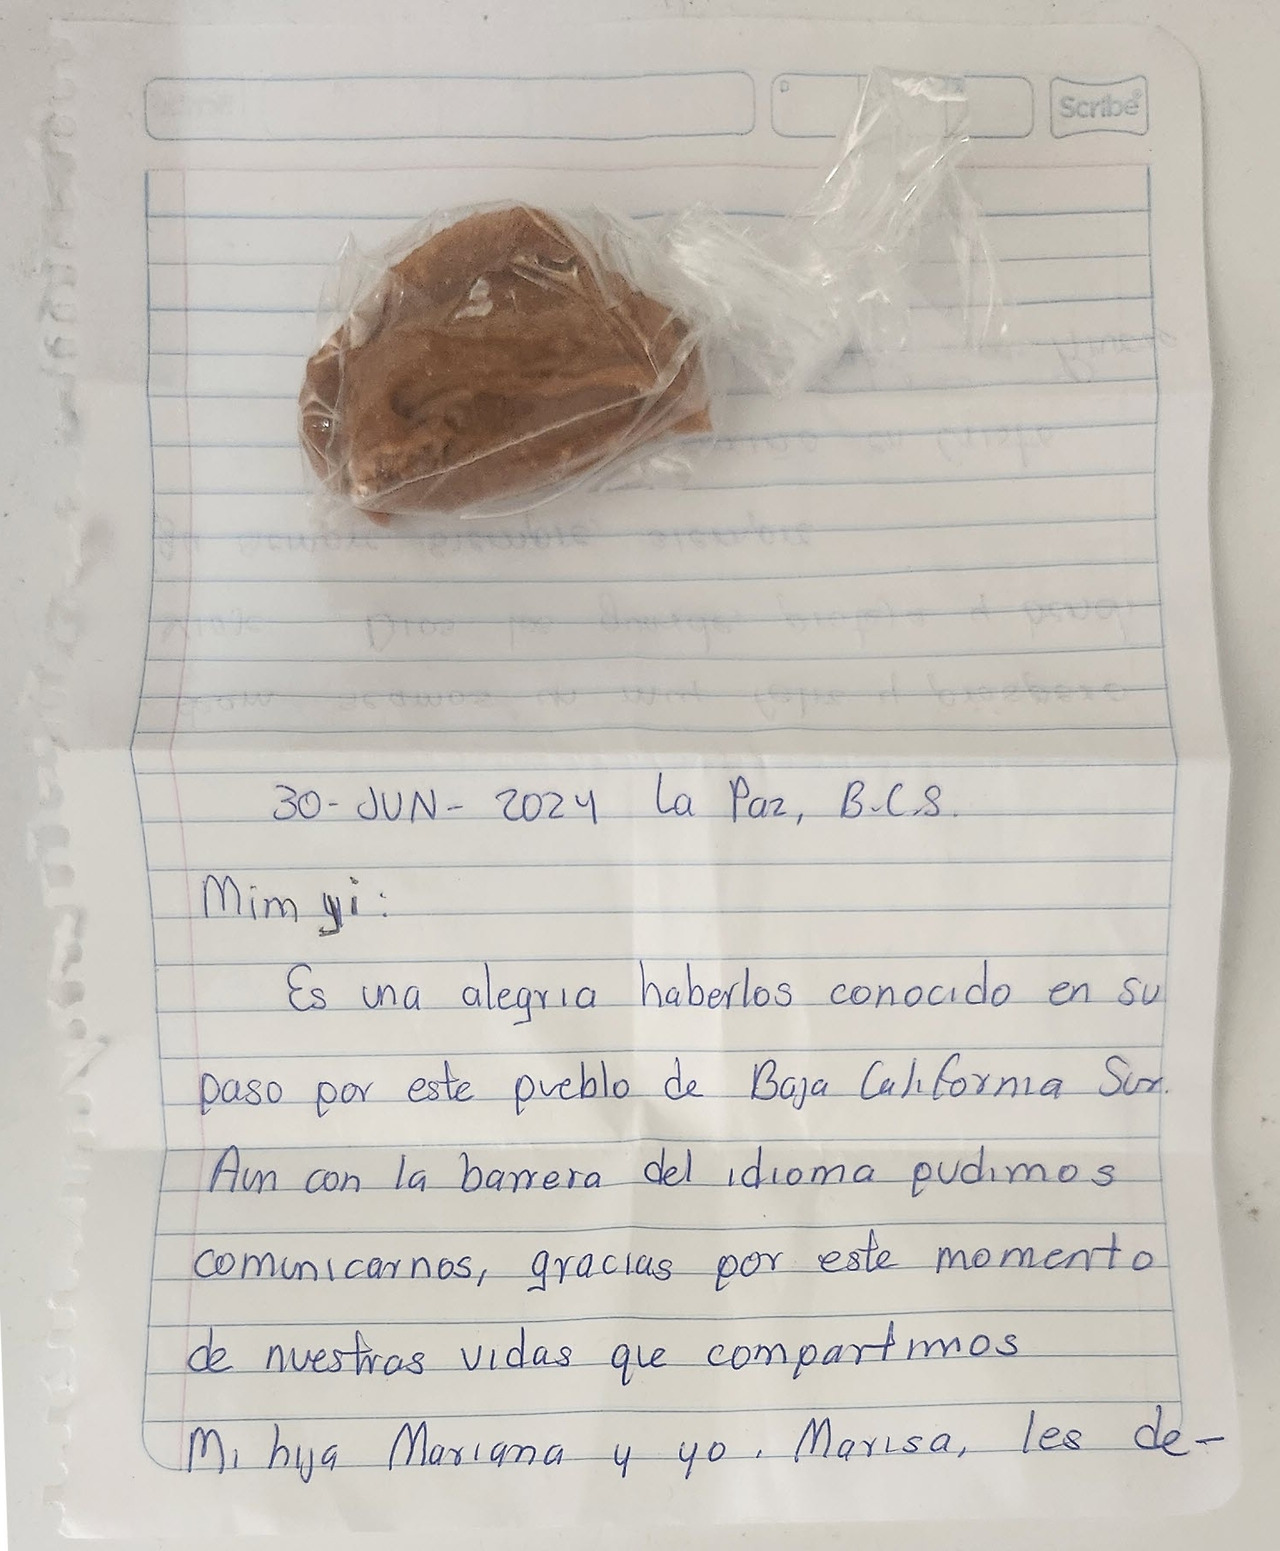 Scribe
30-JUN-2024 La Paz, B.C.S.
Mim yi:
Es una alegria haberlos conocido en su
paso por este pueblo de Baja California Sur.
Aun con la barrera del idioma pudimos
comunicarnos, gracias por este momento
de nuestras vidas que compartimos
Mi hija Mariana y yo. Marisa, les de-